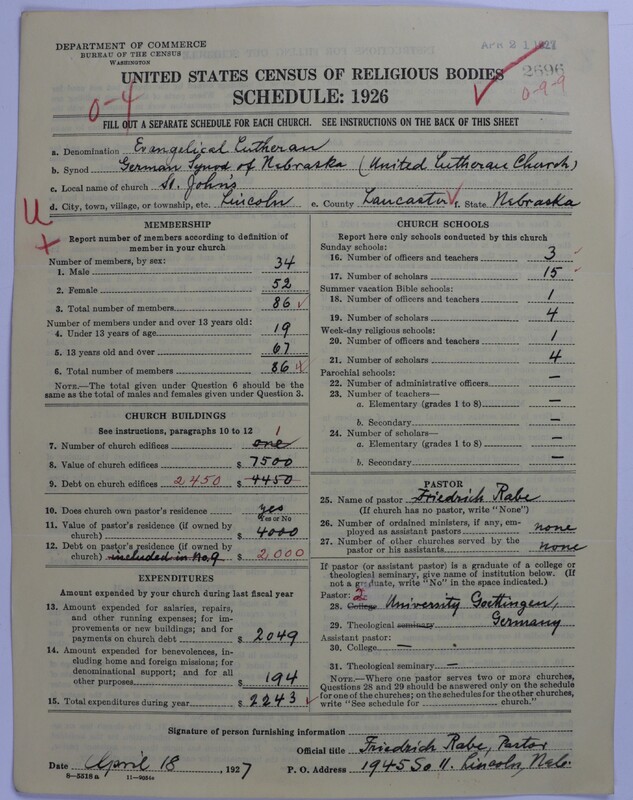 DEPARTMENT OF COMMERCE
BUREAU OF THE CENSUS
WASHINGTON
APR 21 1927
2696
0-9-9
UNITED STATES CENSUS OF RELIGIOUS BODIES
SCHEDULE: 1926
0-4
FILL OUT A SEPARATE SCHEDULE FOR EACH CHURCH. SEE INSTRUCTIONS ON THE BACK OF THIS SHEET
a. Denomination Evangelical Lutheran
b. Synod German Synod of Nebraska (United Lutheran Church)
c. Local name of church St. John's
d. City, town, village, or township, etc. Lincoln e. County Lancaster f. State Nebraska
U
MEMBERSHIP
Report number of members according to definition of
member in your church
Number of members, by sex:
1. Male 34
2. Female 52
3. Total number of members 86
Number of members under and over 13 years old:
4. Under 13 years of age 19
5. 13 years old and over 67
6. Total number of members 86
NOTE.—The total given under Question 6 should be the
same as the total of males and females given under Question 3.
CHURCH BUILDINGS
See instructions, paragraphs 10 to 12
7. Number of church edifices one 1
8. Value of church edifices $ 7500
9. Debt on church edifices 2450 $ 4450
10. Does church own pastor's residence yes
Yes or No
11. Value of pastor's residence (if owned by
church) $ 4000
12. Debt on pastor's residence (if owned by
church) included in No. 9 $ 2,000
EXPENDITURES
Amount expended by your church during last fiscal year
13. Amount expended for salaries, repairs,
and other running expenses; for im-
provements or new buildings; and for
payments on church debt $ 2049
14. Amount expended for benevolences, in-
cluding home and foreign missions; for
denominational support; and for all
other purposes $ 194
15. Total expenditures during year $ 2243
CHURCH SCHOOLS
Report here only schools conducted by this church
Sunday schools:
16. Number of officers and teachers 3
17. Number of scholars 15
Summer vacation Bible schools:
18. Number of officers and teachers 1
19. Number of scholars 4
Week-day religious schools:
20. Number of officers and teachers 1
21. Number of scholars 4
Parochial schools:
22. Number of administrative officers —
23. Number of teachers—
a. Elementary (grades 1 to 8) —
b. Secondary —
24. Number of scholars—
a. Elementary (grades 1 to 8) —
b. Secondary —
PASTOR
25. Name of pastor Friedrich Rabe
(If church has no pastor, write "None")
26. Number of ordained ministers, if any, em-
ployed as assistant pastors none
27. Number of other churches served by the
pastor or his assistants none
If pastor (or assistant pastor) is a graduate of a college or
theological seminary, give name of institution below. (If
not a graduate, write "No" in the space indicated.)
Pastor: 2
28. College University Goettingen,
29. Theological seminary Germany
Assistant pastor:
30. College —
31. Theological seminary —
NOTE.—Where one pastor serves two or more churches,
Questions 28 and 29 should be answered only on the schedule
for one of the churches; on the schedules for the other churches,
write "See schedule for church."
Signature of person furnishing information
Official title Friedrich Rabe, Pastor
Date April 18, 1927 P. O. Address 1945 So 11. Lincoln, Nebr.
8—5518a 11—9054